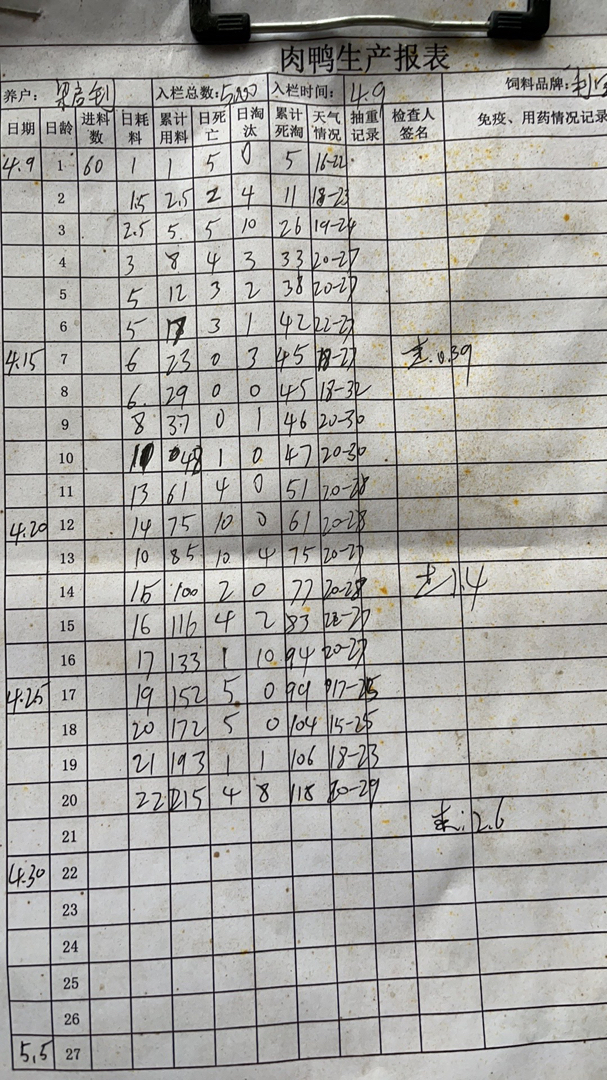 肉鸭生产报表
养户: 入栏总数:5,000 入栏时间: 4.9 饲料品牌:
日期 日龄 进料数 日耗料 累计用料 日死亡 日淘汰 累计死淘 天气情况 抽重记录 检查人签名 免疫、用药情况记录
4.9 1 60 1 1 5 0 5 16-22
2 1.5 2.5 2 4 11 18-23
3 2.5 5. 5 10 26 19-24
4 3 8 4 3 33 20-27
5 5 12 3 2 38 20-27
6 5 17 3 1 42 22-27
4.15 7 6 23 0 3 45 18-27 0.39
8 6. 29 0 0 45 18-32
9 8 37 0 1 46 20-30
10 48 1 0 47 20-30
11 13 61 4 0 51 20-28
4.20 12 14 75 10 0 61 20-28
13 10 85 10 4 75 20-27
14 15 100 2 0 77 20-28 1.4
15 16 116 4 2 83 22-27
16 17 133 1 10 94 20-27
4.25 17 19 152 5 0 99 17-25
18 20 172 5 0 104 15-25
19 21 193 1 1 106 18-23
20 22 215 4 8 118 20-29
21 2.6
4.30 22
23
24
25
26
5.5 27